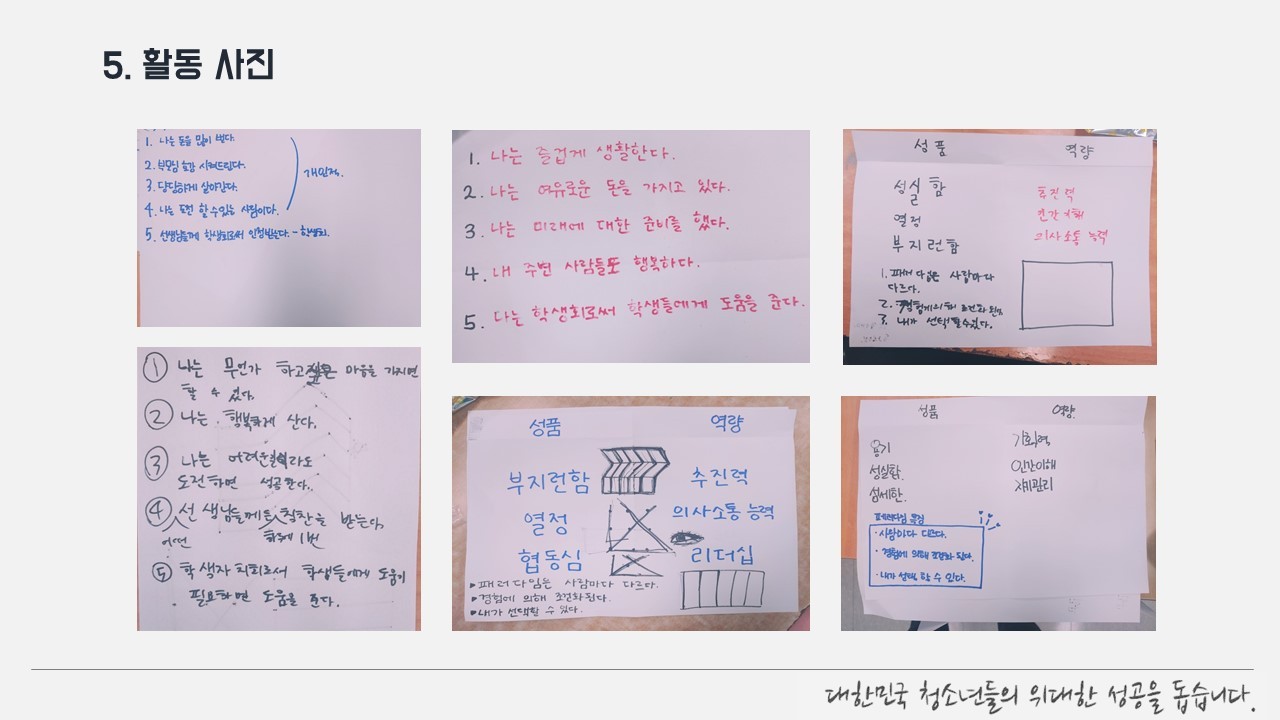 5. 활동 사진
1. 나는 돈을 많이 번다.
2. 부모님 효강 시켜드린다.
3. 당당하게 살아간다.
4. 나는 도전 할 수 있는 사람이다.
개인적.
5. 선생님들께 학생회로서 인정받는다. - 학생회.
1. 나는 즐겁게 생활한다.
2. 나는 여유로운 돈을 가지고 있다.
3. 나는 미래에 대한 준비를 했다.
4. 내 주변 사람들도 행복하다.
5. 나는 학생회로써 학생들에게 도움을 준다.
성품 역량
성실함 추진력
열정 인간이해
부지런함 의사소통 능력
1. 패러다임은 사람마다
다르다.
2. 경험에 의해 조건화 된다.
3. 내가 선택할 수 있다.
① 나는 무언가 하고싶은 마음을 가지면
할 수 있다.
② 나는 행복하게 산다.
③ 나는 어려운일이라도
도전하면 성공한다.
④ 선생님들께도 칭찬을 받는다.
어떤 하루에 1번
⑤ 학생자치회로서 학생들에게 도움이
필요하면 도움을 준다.
성품 역량
부지런함 추진력
열정 의사소통 능력
협동심 리더십
▸패러다임은 사람마다 다르다.
▸경험에 의해 조건화된다.
▸내가 선택할 수 있다.
성품 역량
용기 기획력
성실함. 인간이해
섬세한. 자기관리
패러다임 특징
·사람마다 다르다.
·경험에 의해 조건화 된다.
·내가 선택 할 수 있다.
대한민국 청소년들의 위대한 성공을 돕습니다.